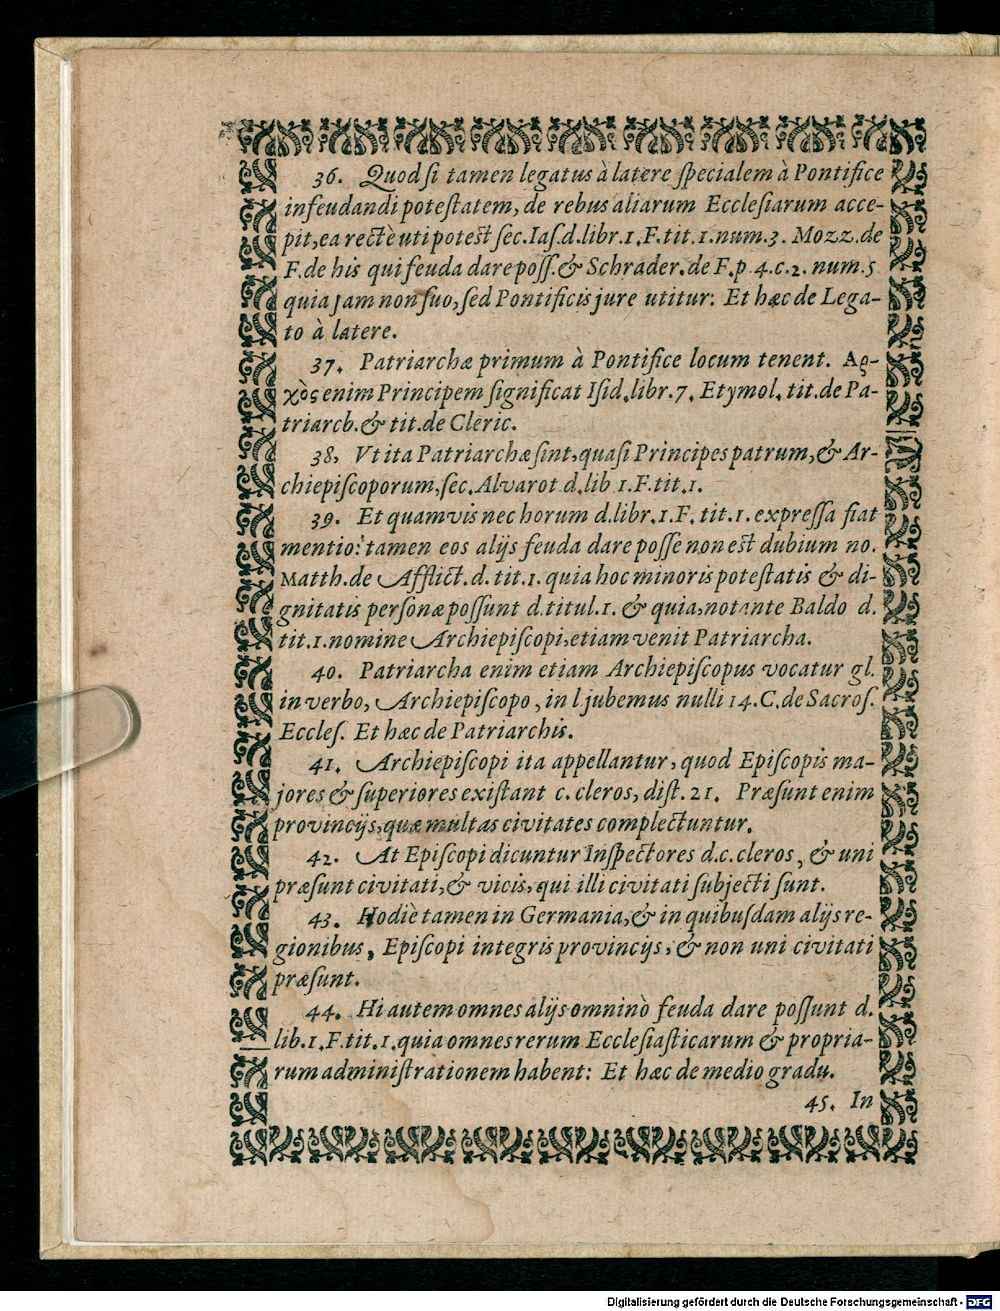 36. Quod si tamen legatus à latere specialem à Pontifice
infeudandi potestatem, de rebus aliarum Ecclesiarum acce-
pit, ea rectè uti potest sec. Ias. d. libr. 1. F. tit. 1. num. 3. Mozz. de
F. de his qui feuda dare poss. & Schrader. de F. p. 4. c. 2. num. 5
quia jam non suo, sed Pontificis jure utitur: Et hæc de Lega-
to à latere.
37. Patriarchæ primum à Pontifice locum tenent. Αρ-
χὸς enim Principem significat Isid. libr. 7. Etymol. tit. de Pa-
triarch. & tit. de Cleric.
38. Vt ita Patriarchæ sint, quasi Principes patrum, & Ar-
chiepiscoporum, sec. Alvarot. d. lib 1. F. tit. 1.
39. Et quamvis nec horum d. libr. 1. F. tit. 1. expressa fiat
mentio: tamen eos alijs feuda dare posse non est dubium no.
Matth. de Afflict. d. tit. 1. quia hoc minoris potestatis & di-
gnitatis personæ possunt d. titul. 1. & quia, notante Baldo d.
tit. 1. nomine Archiepiscopi, etiam venit Patriarcha.
40. Patriarcha enim etiam Archiepiscopus vocatur gl.
in verbo, Archiepiscopo, in l jubemus nulli 14. C. de Sacros.
Eccles. Et hæc de Patriarchis.
41. Archiepiscopi ita appellantur, quod Episcopis ma-
jores & superiores existant c. cleros, dist. 21. Præsunt enim
provincijs, quæ multas civitates complectuntur.
42. At Episcopi dicuntur Inspectores d. c. cleros, & uni
præsunt civitati, & vicis, qui illi civitati subjecti sunt.
43. Hodiè tamen in Germania, & in quibusdam alijs re-
gionibus, Episcopi integris provincijs, & non uni civitati
præsunt.
44. Hi autem omnes alijs omninò feuda dare possunt d.
lib. 1. F. tit. 1. quia omnes rerum Ecclesiasticarum & propria-
rum administrationem habent: Et hæc de medio gradu.
45. In
Digitalisierung gefördert durch die Deutsche Forschungsgemeinschaft - DFG